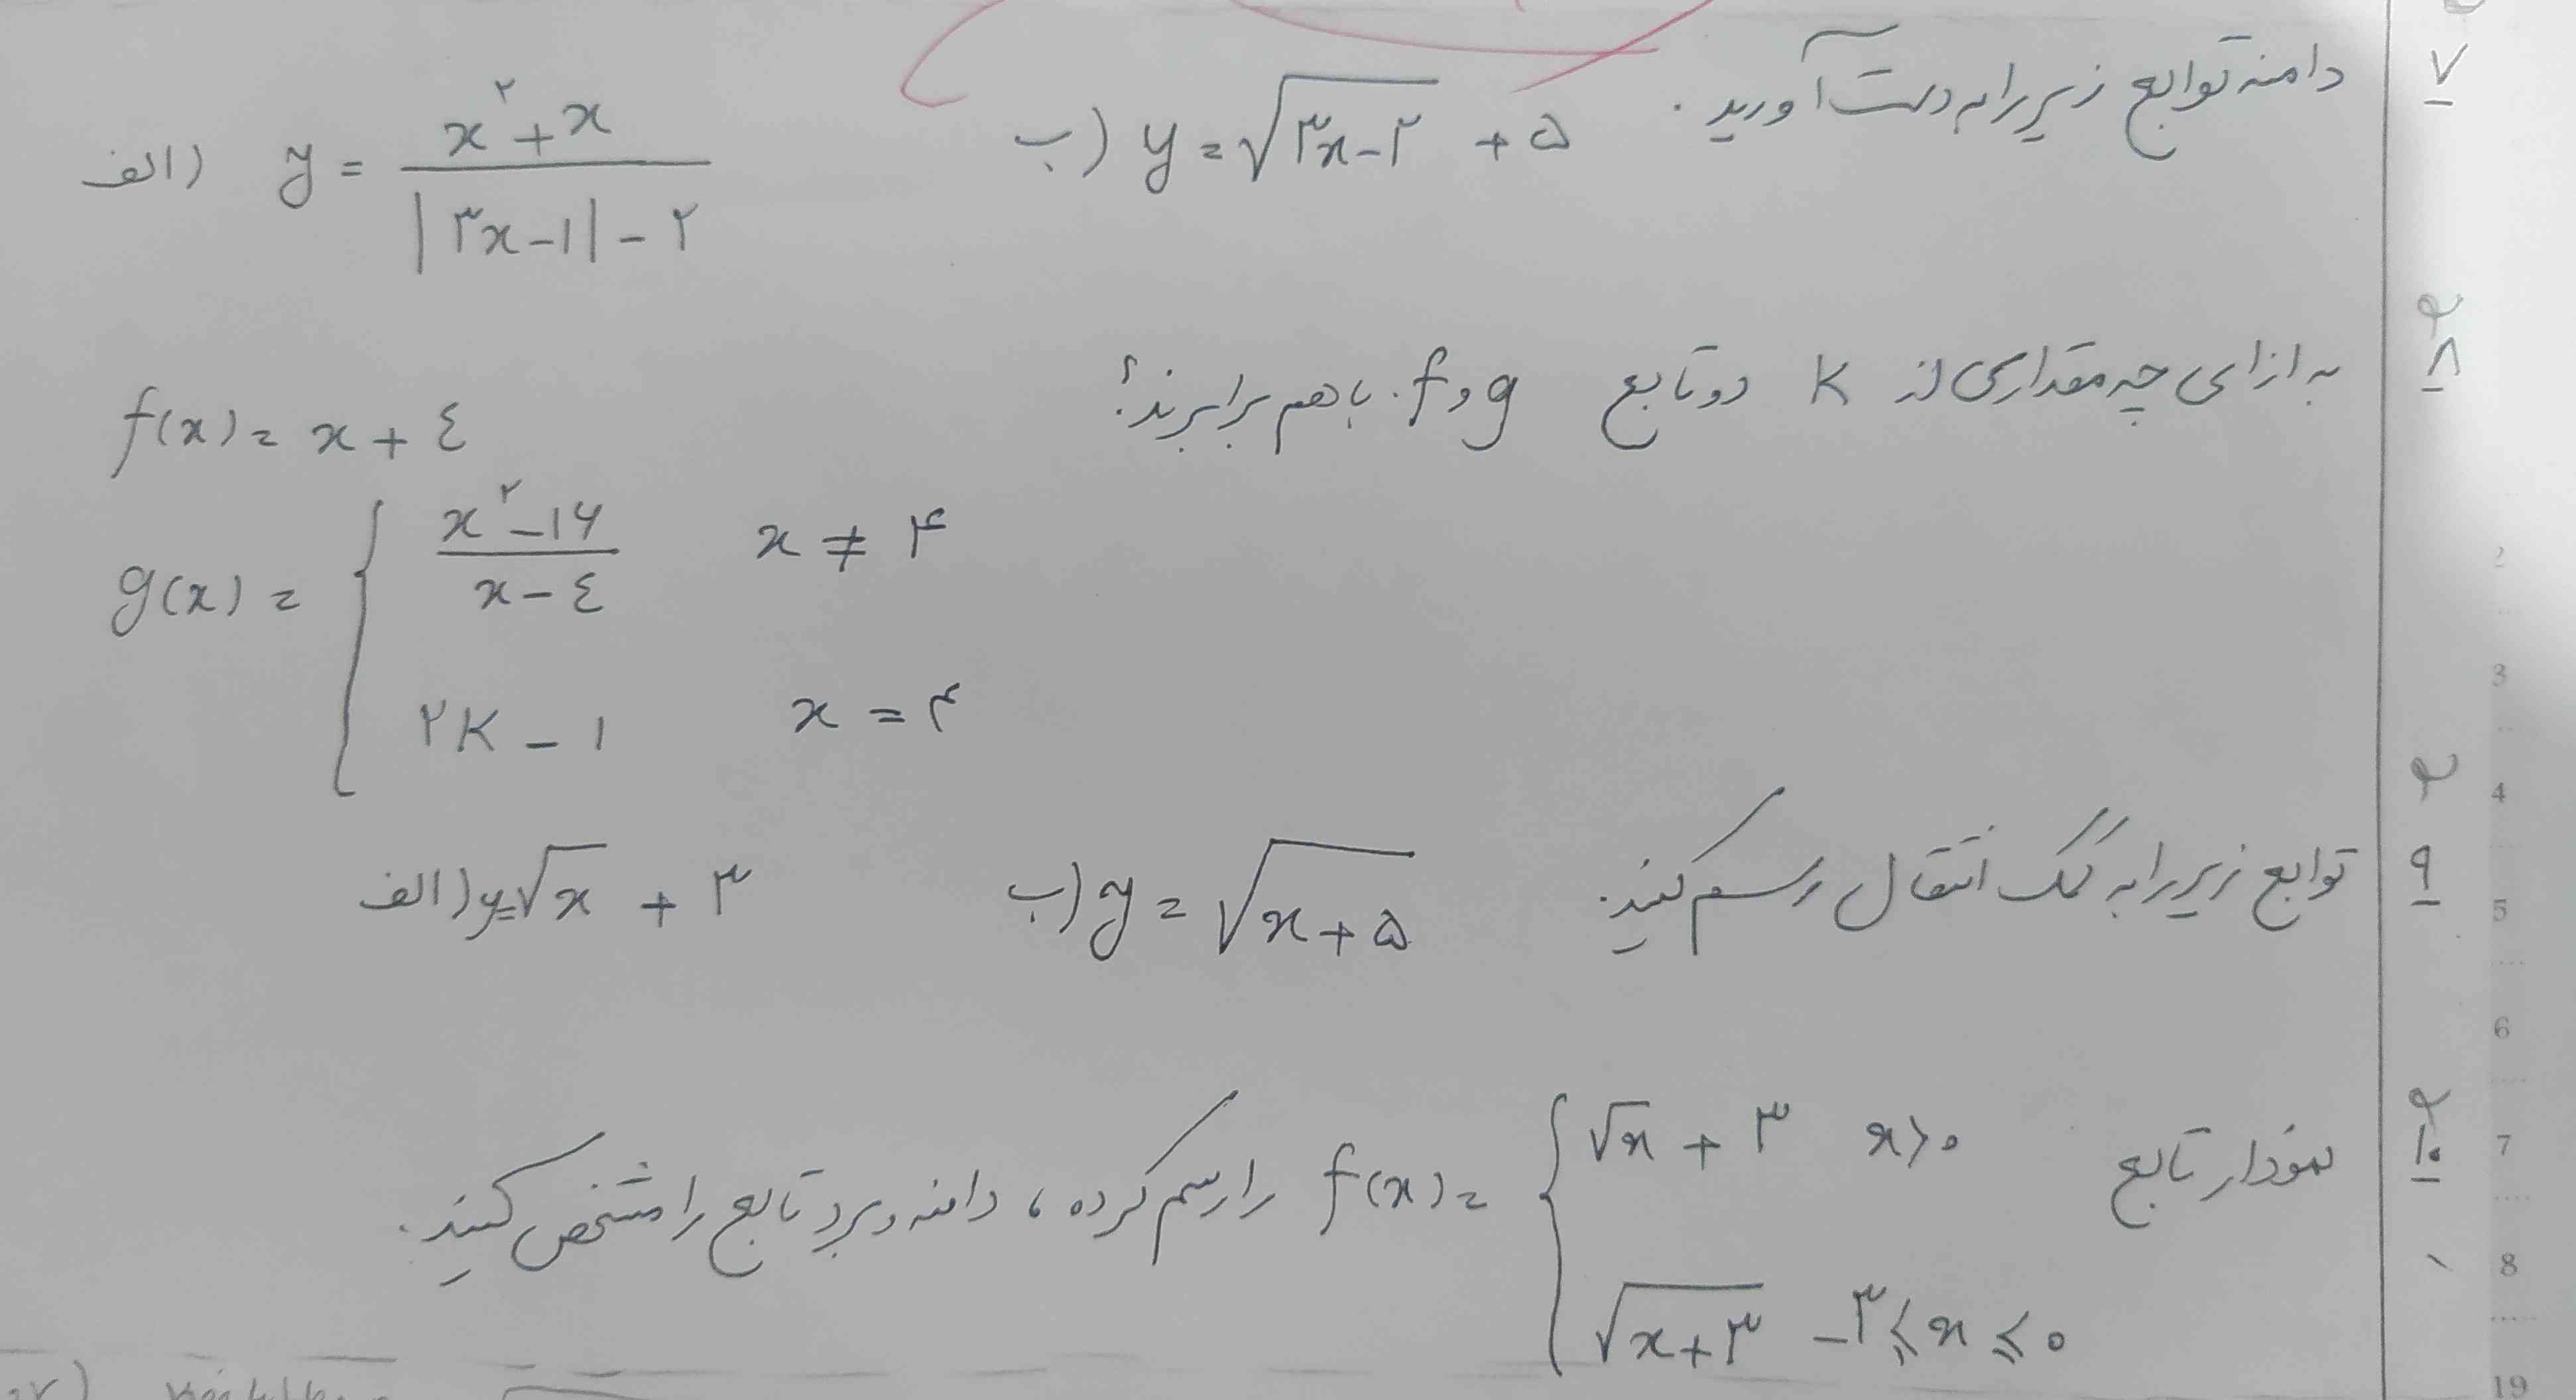 ۷ دامنه توابع زیر را به دست آورید.
الف) y = (x^۲ + x) / (|۳x - ۱| - ۲)    ب) y = √(۳x - ۲) + ۵
۲
۸ به ازای چه مقداری از K دو تابع g و f باهم برابرند؟
f(x) = x + ٤
g(x) = { (x^۲ - ۱۶) / (x - ٤)    x ≠ ۴
۲K - ۱    x = ۴
۲
۹ توابع زیر را به کمک انتقال رسم کنید.
الف) y = √x + ۳    ب) y = √(x + ۵)
۲
۱۰ نمودار تابع f(x) = { √x + ۳    x > ۰
√(x + ۳)    -۳ ≤ x ≤ ۰
را رسم کرده، دامنه و برد تابع را مشخص کنید.
2
3
4
5
6
7
8
19